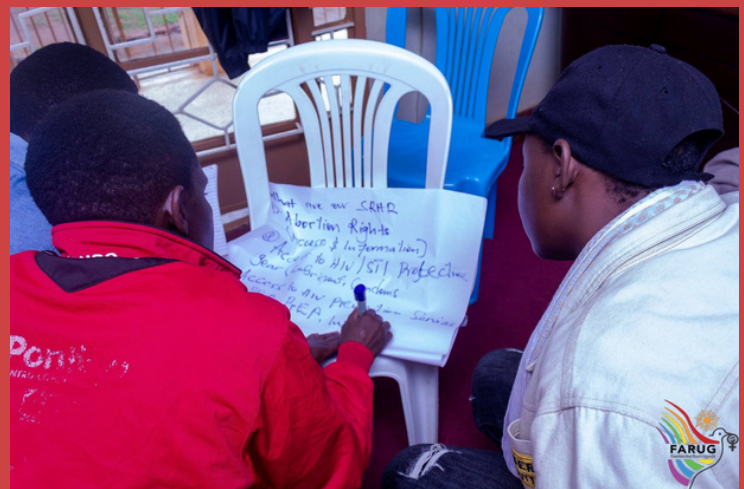 What are our SRHR
Abortion Rights
(Access & Information)
Access to HIV/STI Protective
gear (lubricants, Condoms
Access to HIV Prevention Services
PrEP,
FARUG